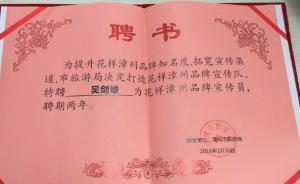 聘书
为提升花样漳州品牌知名度,拓宽宣传渠
道,市旅游局决定打造花样漳州品牌宣传队,
特聘 吴剑雄 为花样漳州品牌宣传员,
聘期两年。
颁发单位:漳州市旅游局
2016年1月30日